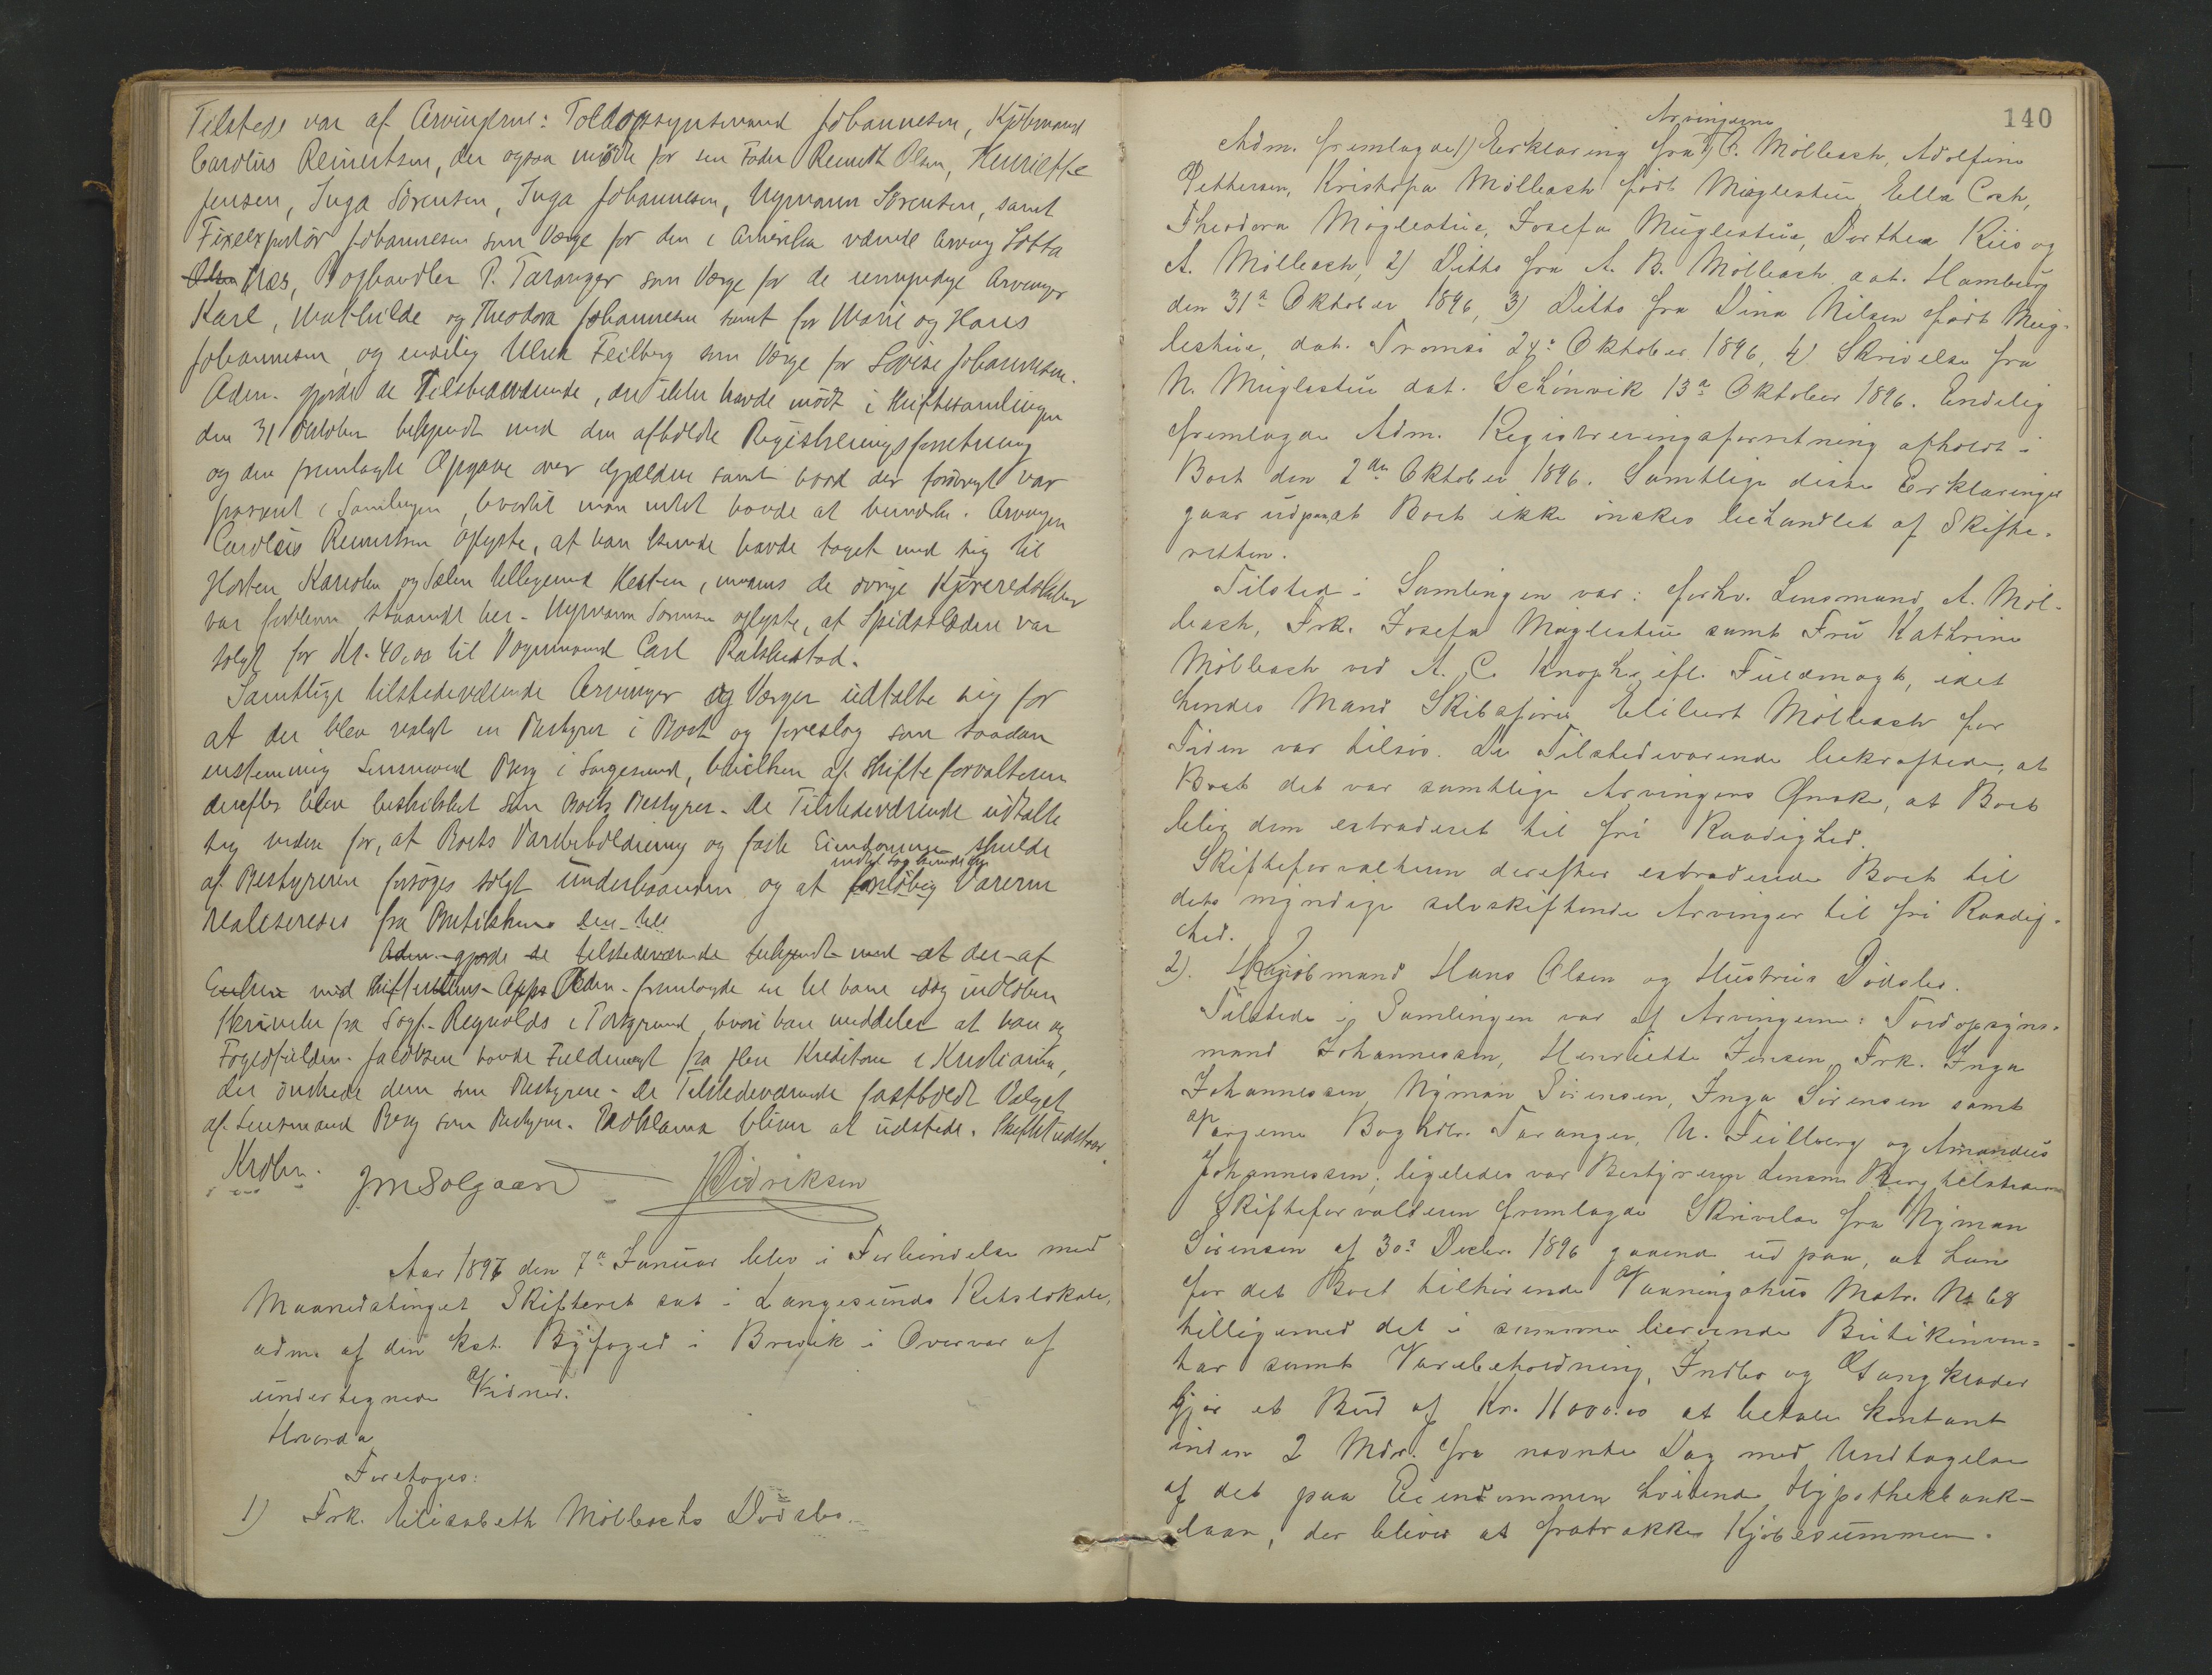 Tilstede var af Arvingerne: Toldopsynsmand Johannesen, Kjøbmand
Carolius Reinertsen, der ogsaa mødte for sin Fader Reinert Olsen, Henriette
Jensen, Inga Sørensen, Inga Johannesen, Nymann Sørensen, samt
Johannesen som Værge for den i Amerika værende Arving Lotta
Næs, Boghandler P. Taranger som Værge for de umyndige Arvinger
Karl, Mathilde og Theodora Johannesen samt for Marie og Hans
Johannesen, og endelig Ulrik Feilberg som Værge for Lovise Johannesen.
Adm. gjorde de Tilstedeværende, der ikke havde mødt i Skiftesamlingen
den 31 Oktober bekjendt med den afholdte Registreringsforretning
og den fremlagte Opgave over Gjælden samt hvad der forøvrigt var
passeret i Samlingen, hvortil man intet havde at bemærke. Arvingen
Carolius Reinertsen oplyste, at han havde taget med sig til
Horten Kariolen og Sælen tilligemed Hesten, medens de øvrige Kjøreredskaber
var forbleven staaende her. Nymann Sørensen oplyste, at Spidsslæden var
solgt for Kr. 40,00 til Vognmand Carl
Samtlige tilstedeværende Arvinger og Værger udtalte sig for
at der blev valgt en Bestyrer i Boet og foreslog som saadan
enstemmig Lensmand Berg i Langesund, hvilken af Skifteforvalteren
derefter blev beskikket som Boets Bestyrer. De Tilstedeværende udtalte
sig videre for, at Boets Varebeholdning og faste Eiendomme skulde
indtil saa kunde ske
af Bestyreren forsøges solgt underhaanden og at foreløbig Varerne
realiseredes fra Butiken
Adm. gjorde de tilstedeværende bekjendt med at der af
med Adm. fremlagde en til ham idag indløben
Skrivelse fra Sagf. Reynolds i Porsgrund, hvori han meddeler at han og
Fogedfuldm. Jacobsen havde Fuldmagt fra flere Kreditorer i Kristiania,
der ønskede dem som Bestyrere. De Tilstedeværende fastholdt Valget
af Lensmand Berg som Bestyrer. Proklama bliver at udstede. Skiftet udstaar.
JM Solgaard H Didriksen
Aar 1897 den 7de Januar blev i Forbindelse med
Maanedstinget Skifteret sat i Langesunds Retslokale,
adm. af den kst. Byfoged i Brevik i Overvær af
undertegnede Vidner.
Hvorda
Foretoges:
1) Frk. Elisabeth Möllbachs Dødsbo.
140
Arvingerne
Adm. fremlagde 1) Erklæring fra C. Möllbach, Adolfine
Petthersen, Kristofa Möllbach født Müglestue, Ella Coch,
Theodora Müglestue, Josefa Müglestue, Dorthea Kiis og
A. Möllbach, 2) Ditto fra A. B. Möllbach dat. Hamburg
den 31te Oktober 1896, 3) Ditto fra Dina Nilsen født Müg-
lestue, dat. Tromsö 24de Oktober 1896, 4) Skrivelse fra
N. Müglestue dat. Schönvik 13de Oktober 1896. Endelig
fremlagde Adm. Registreringsforretning afholdt i
Boet den 2den Oktober 1896. Samtlige disse Erklæringer
gaar ud paa, at Boet ikke ønskes behandlet af Skifte-
retten.
Tilstede i Samlingen var: forhv. Lensmand A. Möl-
bach, Frk. Josefa Müglestue samt Fru Kathrine
Möllbach ved A. C. Knoph ifl. Fuldmagt, idet
hendes Mand Skibsfører Eilert Möllbach for
Tiden var tilsøs. De Tilstedeværende bekræftede, at
Boet det var samtlige Arvingers Ønske, at Boet
blev dem extraderet til fri Raadighed.
Skifteforvalteren derefter extraderede Boet til
dets myndige selvskiftende Arvinger til fri Raadig-
hed.
2). Kjøbmand Hans Olsen og Hustrus Dødsbo.
Tilstede i Samlingen var af Arvingerne: Toldopsyns-
mand Johannessen, Henriette Jensen, Frk. Inga
Johannessen, Nyman Sørensen, Inga Sörensen samt
Værgerne Boghdlr. Taranger, U. Feilberg og Amandus
Johannessen; ligeledes var Bestyreren Lensm. Berg tilstede
Skifteforvalteren fremlagde Skrivelse fra Nyman
Sörensen af 30te Decbr. 1896 gaaende ud paa, at han
for det Boet tilhørende Vaaningshus Matr. No 68
tilligemed det i samme beroende Butikinven-
tar samt Varebeholdning, Indbo og Gangklæder
gjør et Bud af Kr. 11000.00 at betale kontant
inden 2 Mdr. fra nævnte Dag med Undtagelse
af det paa Eiendommen hvilende Hypothekbank-
laan, der bliver at fratrække Kjøbesummen.